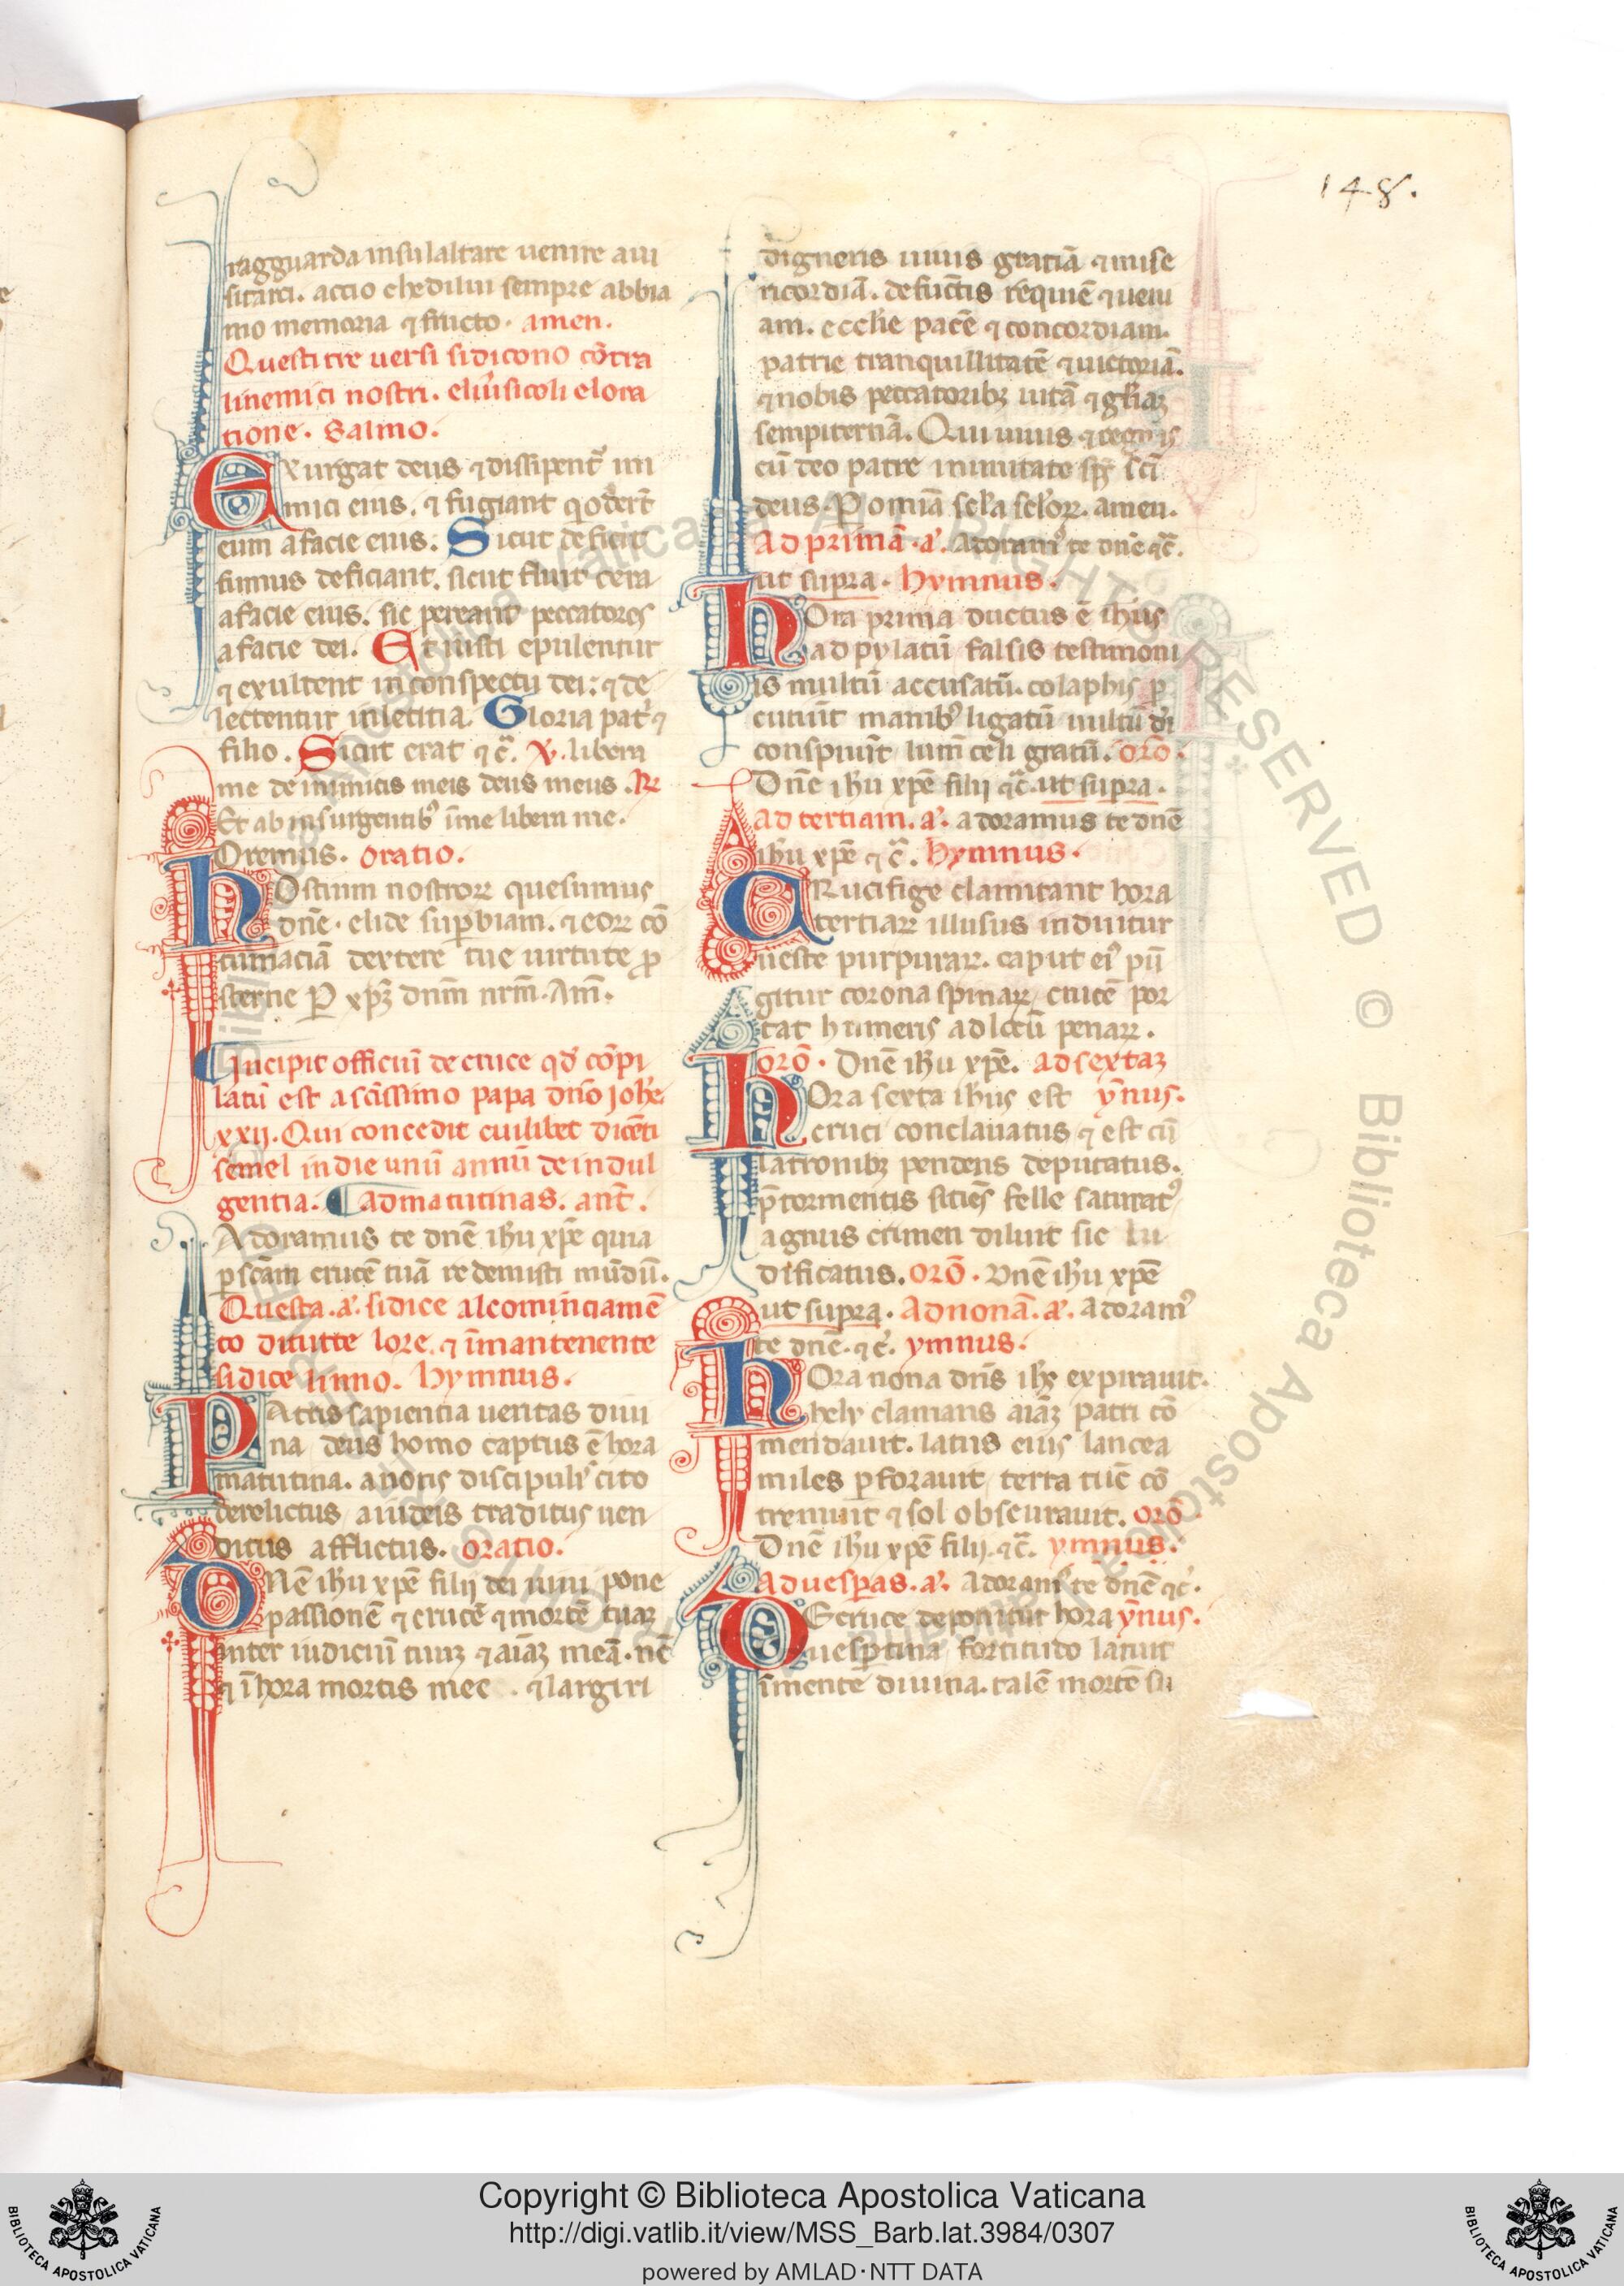 148.
ragguarda insulaltare uenire aui
sitarci. accio chedilui sempre abbia
mo memoria ⁊ fructo. amen.
Questi tre uersi sidicono cōtra
linemici nostri. eliu̾sicoli elora
tione. Salmo.
EXurgat deus ⁊ dissipent᷑ ini
mici eius. ⁊ fugiant q̇ oder̄t
eum afacie eius. Sicut deficit
fumus deficiant. sicut fluit cera
afacie eius. sic pereant peccatores
afacie dei. Et iusti epulentur
⁊ exultent inconspectu dei: ⁊ de
lectentur inletitia. Gloria pat̾ ⁊
filio. Sicut erat ⁊c̄. ℣. libera
me deinimicis meis deus meus. ℟
Et ab insurgentibꝰ īme libera me.
Oremus. oratio.
HOstium nostroꝝ quesumus
dn̄e. elide suꝑbiam. ⁊ eoꝝ cō
tumaciā dextere tue uirtute ꝓ
sterne P xp̄ꝫ dnm̄ nrm̄. Am̄.
¶Incipit officiuȝ de cruce qd̾ cōpi
latū est a scīssimo papa dn̄o joh̄e
xxij. Qui concedit cuilibet dicēti
semel indie unū annū deindul
gentia. ¶Admatutinas. ant̄.
Adoramus te dn̄e ih̄u xp̄e quia
ꝑ scām crucē tuā redemisti mūdū.
Questa .a̾. sidice alcominciamē
to ditutte lore. ⁊ īmantenente
sidice linno. Hymnus.
PAtris sapientia ueritas diui
na deus homo captus ē hora
matutina. anotis discipulis cito
derelictus aiudeis traditus uen
ditus afflictus. oratio.
DNē ih̄u xp̄e filij dei uiui pone
passionē ⁊ crucē ⁊ mortē tuaȝ
inter iudiciū tuuȝ ⁊ aīaȝ meā. nc̄
⁊ ī hora mortis mee. ⁊ largiri
digneris uiuis gratiā ⁊ mise
ricordiā. defunctis requiē ⁊ ueni
am. ecclīe pacē ⁊ concordiam.
patrie tranquillitatē ⁊ uictoriā.
⁊ nobis peccatoribȝ uitā ⁊ gl̄iaȝ
sempiternā. Qui uiuis ⁊ regnas
cū deo patre inunitate sp̄s sc̄i
deus. P omīa sc̄la sc̄loꝝ. amen.
Ad primā .a̾. Adoramꝰ te dn̄e ⁊c̄.
ut supra. Hymnus.
HOra prima ductus ē ih̄us
ad pylatū falsis testimoni
is multū accusatū. colaphis ꝑ
cutiūt manibꝰ ligatū uultū dei
conspuūt lum̄ celi gratū. orō.
Dn̄e ih̄u xp̄e filij ⁊c̄ ut supra.
Ad tertiam. a̾. adoramus te dn̄e
ih̄u xp̄e ⁊c̄. Hymnus.
CRucifige clamitant hora
tertiaꝝ illusus induitur
ueste purpuraꝝ. caput eiꝰ pū
gitur corona spinaꝝ crucē por
tat humeris ad locū penaꝝ.
orō. Dn̄e ih̄u xp̄e. ad sextaȝ
HOra sexta ih̄us est ȳnus.
cruci conclauatus ⁊ est cū
latronibȝ pendens deputatus.
p̄ tormentis sitiēs felle saturatꝰ
agnus crimen diluit sic lu
dificatus. orō. Dn̄e ih̄u xp̄e
ut supra. Ad nonā. a̾. adoramꝰ
te dn̄e. ⁊c̄. ymnus.
HOra nona dn̄s ih̄s expirauit.
hely clamans aīaȝ patri cō
mendauit. latus eius lancea
miles ꝑforauit terra tūc cō
tremuit ⁊ sol obscurauit. orō
Dn̄e ih̄u xp̄e filij. ⁊c̄. ymnus.
Ad uesꝑas. a̾. Adoramꝰ te dn̄e ⁊c̄.
DE cruce deponitur hora ȳnus.
uesꝑtina fortitudo latuit
īmente diuina. talē mortē su
Copyright © Biblioteca Apostolica Vaticana
http://digi.vatlib.it/view/MSS_Barb.lat.3984/0307
powered by AMLAD·NTT DATA
BIBLIOTECA APOSTOLICA VATICANA
BIBLIOTECA APOSTOLICA VATICANA